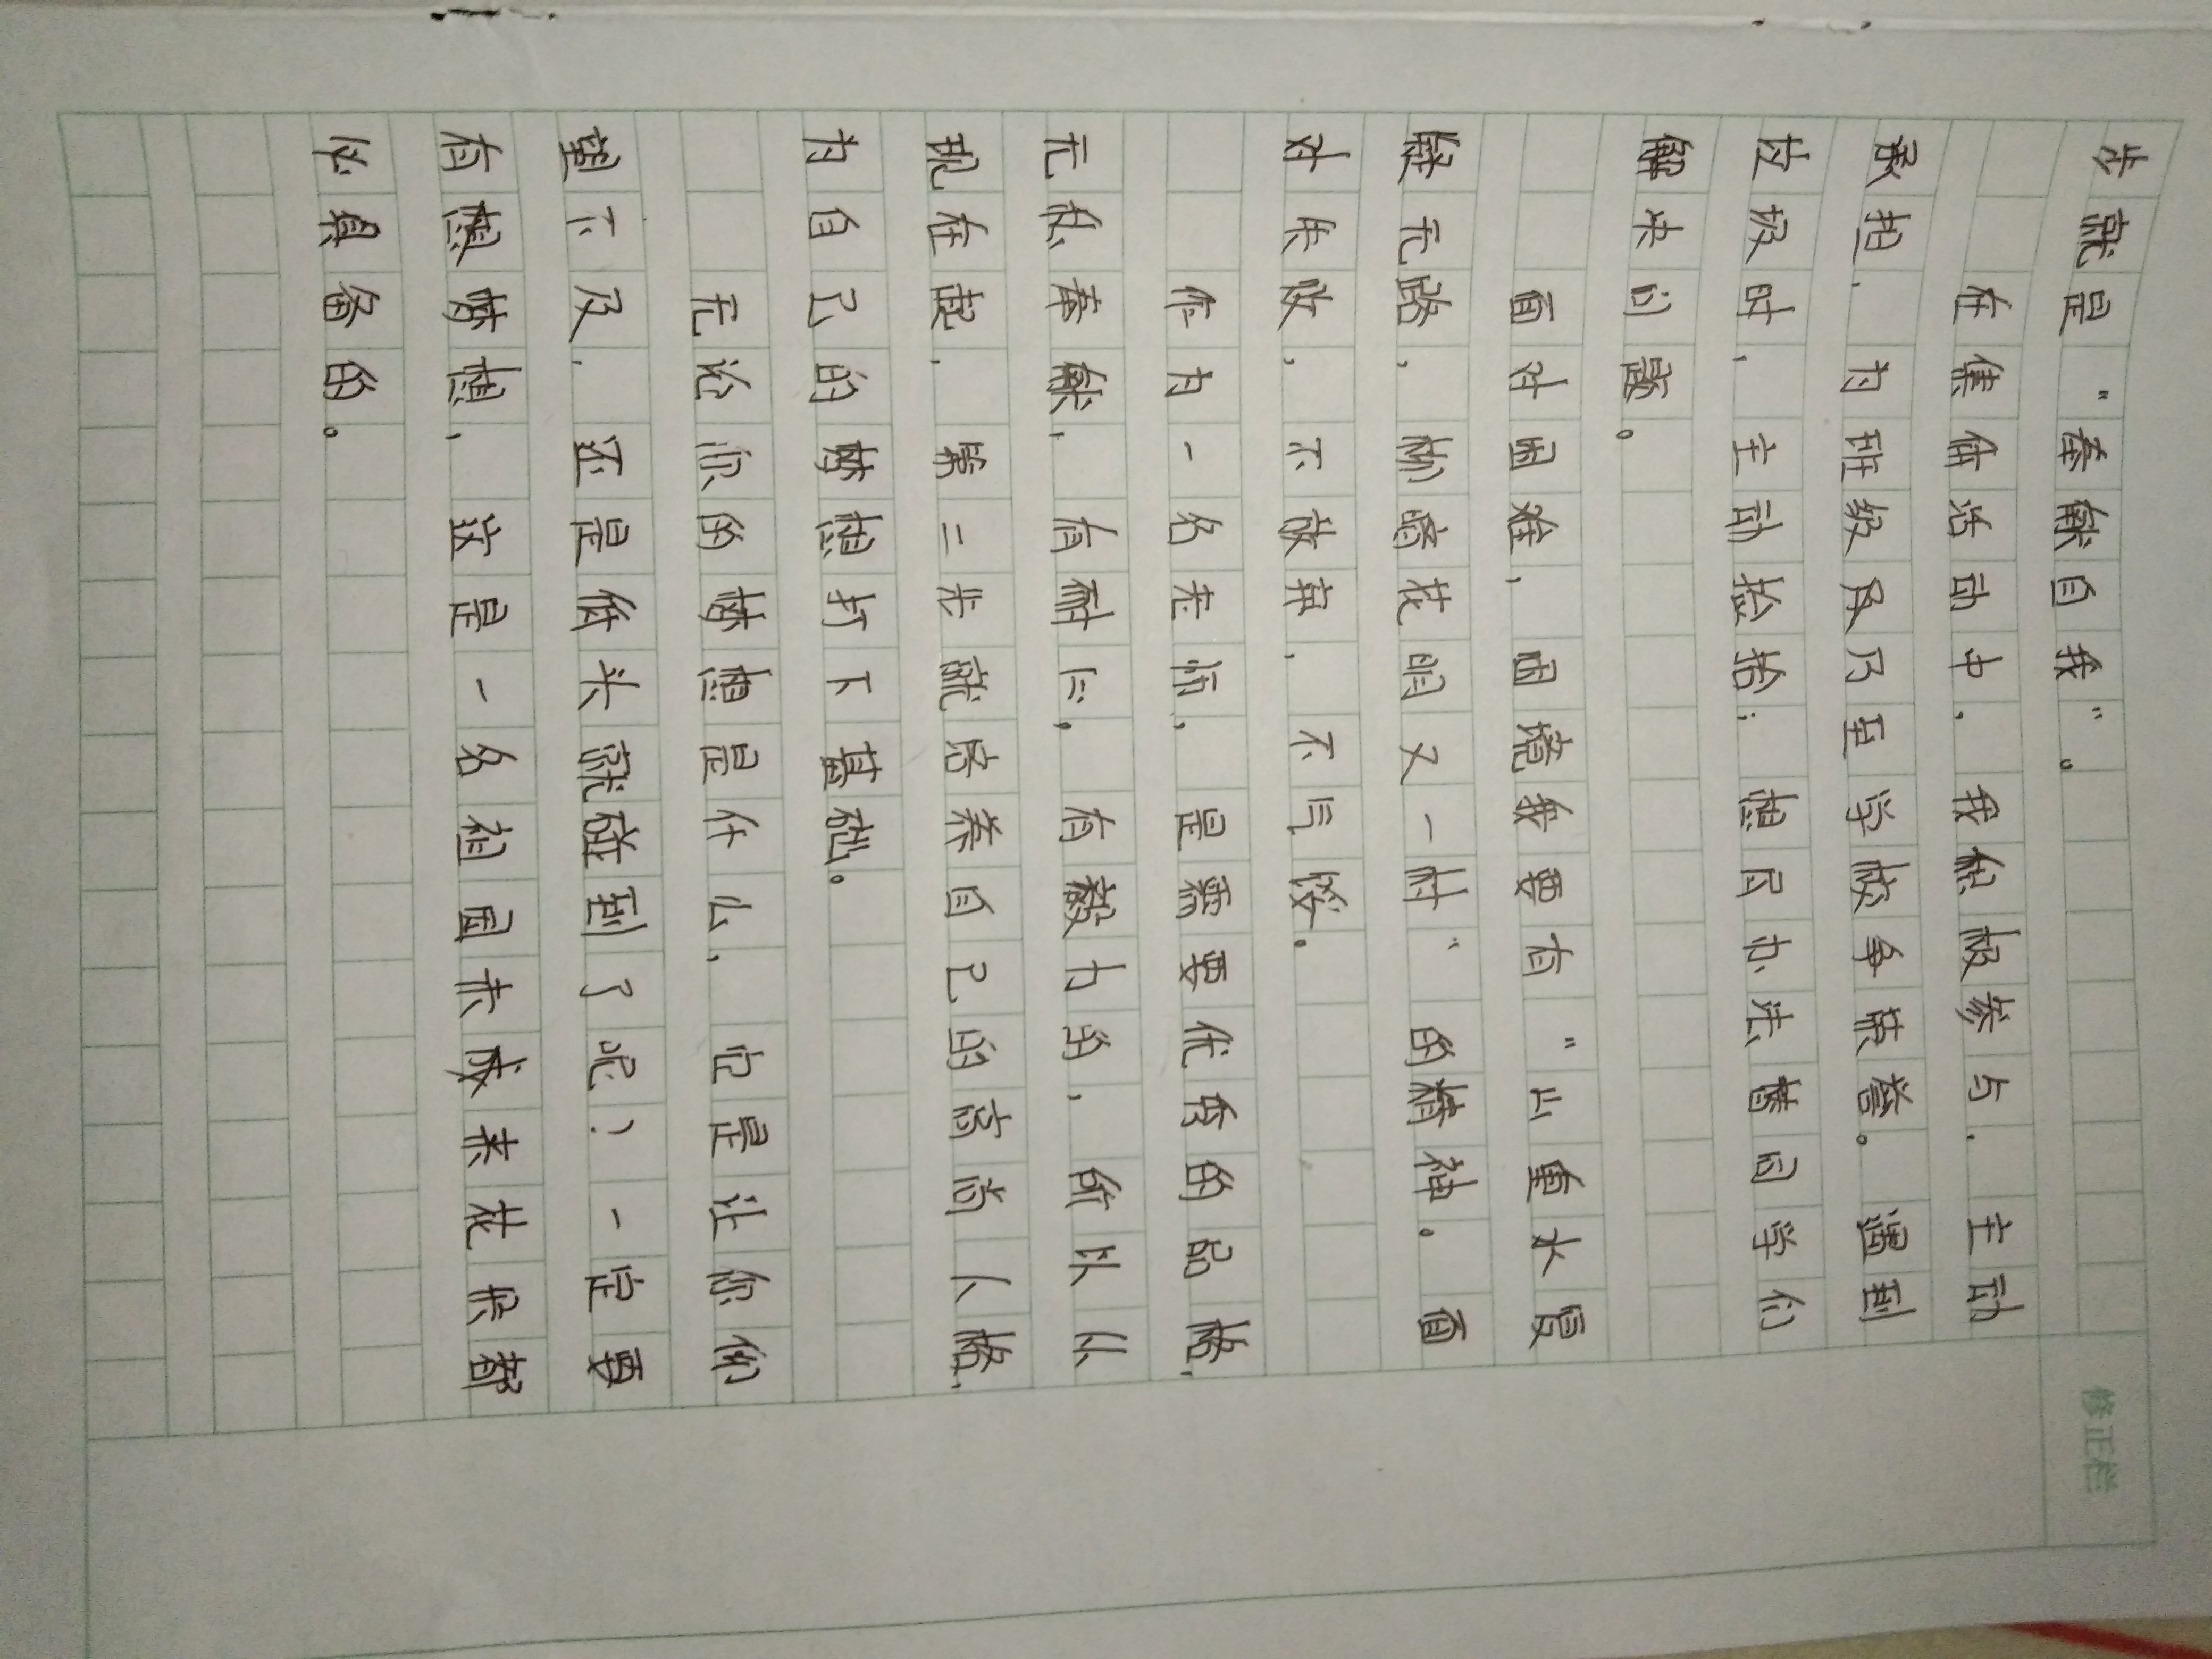 步就是“奉献自我”。
在集体活动中，我积极参与，主动
承担，为班级及乃至学校争荣誉。遇到
垃圾时，主动捡拾；想尽办法替同学们
解决问题。
面对困难，困境我要有“山重水复
疑无路，柳暗花明又一村”的精神。面
对失败，不放弃，不气馁。
作为一名老师，是需要优秀的品格，
无私奉献，有耐心，有毅力的，所以从
现在起，第二步就培养自己的高尚人格，
为自己的梦想打下基础。
无论你的梦想是什么，它是让你仰
望不及，还是低头就碰到了呢？一定要
有怀梦想，这是一名祖国未成来花朵都
必具备的。
修正栏